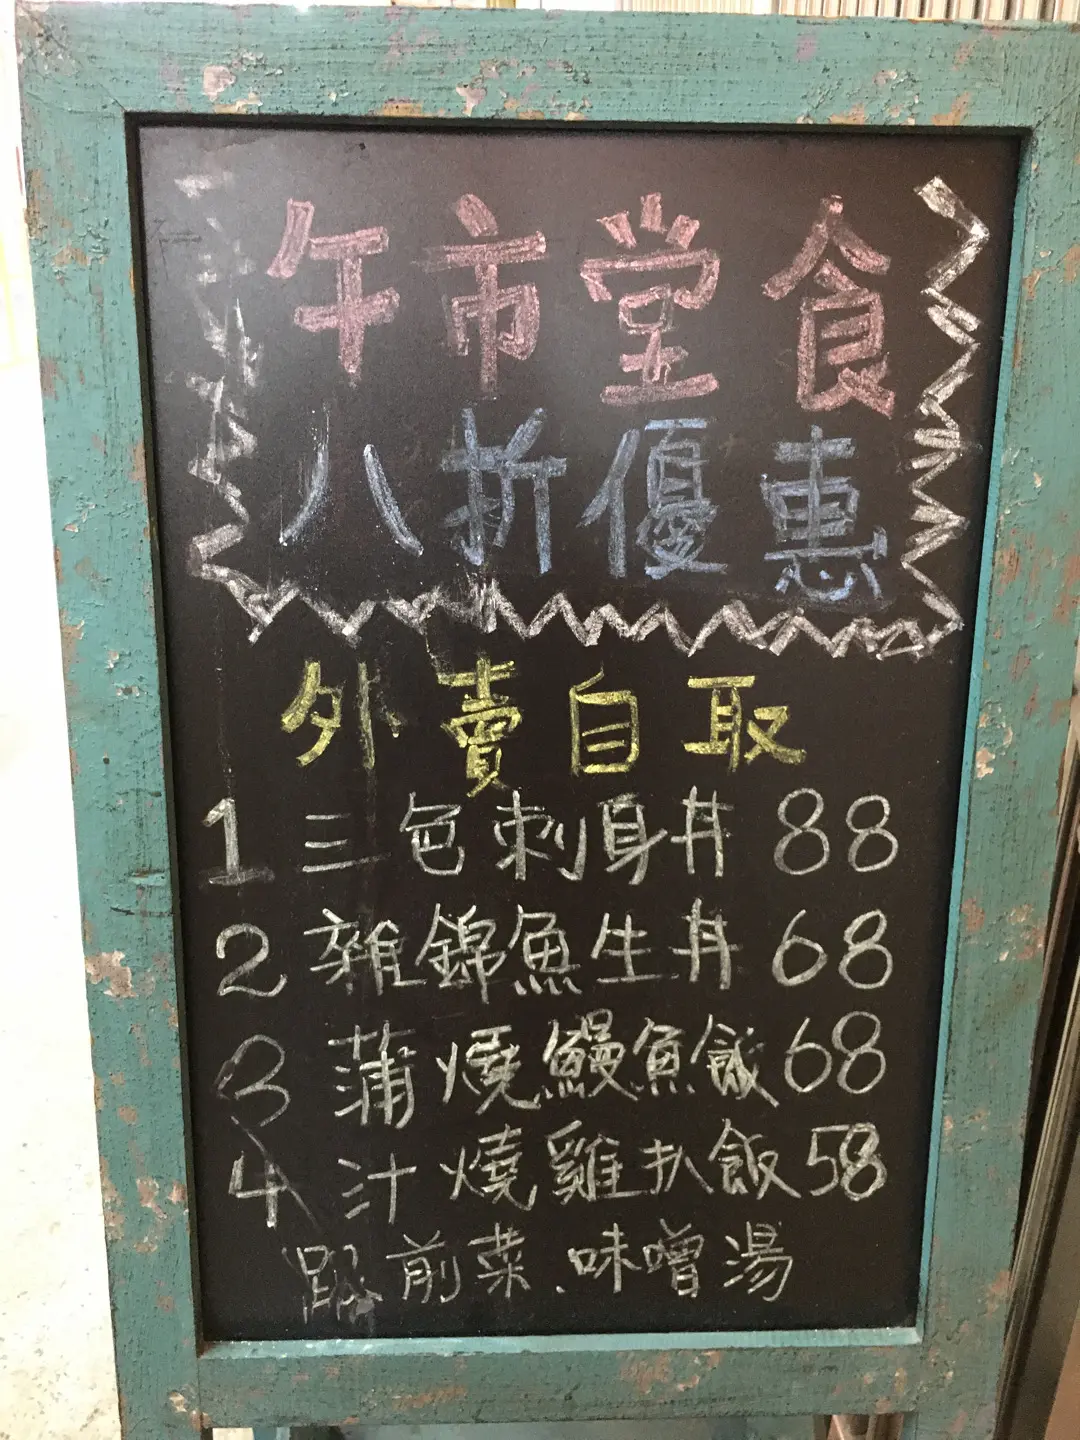 午市堂食
八折優惠
外賣自取
1 三色刺身丼 88
2 雜錦魚生丼 68
3 蒲燒鰻魚飯 68
4 汁燒雞扒飯 58
跟前菜、味噌湯